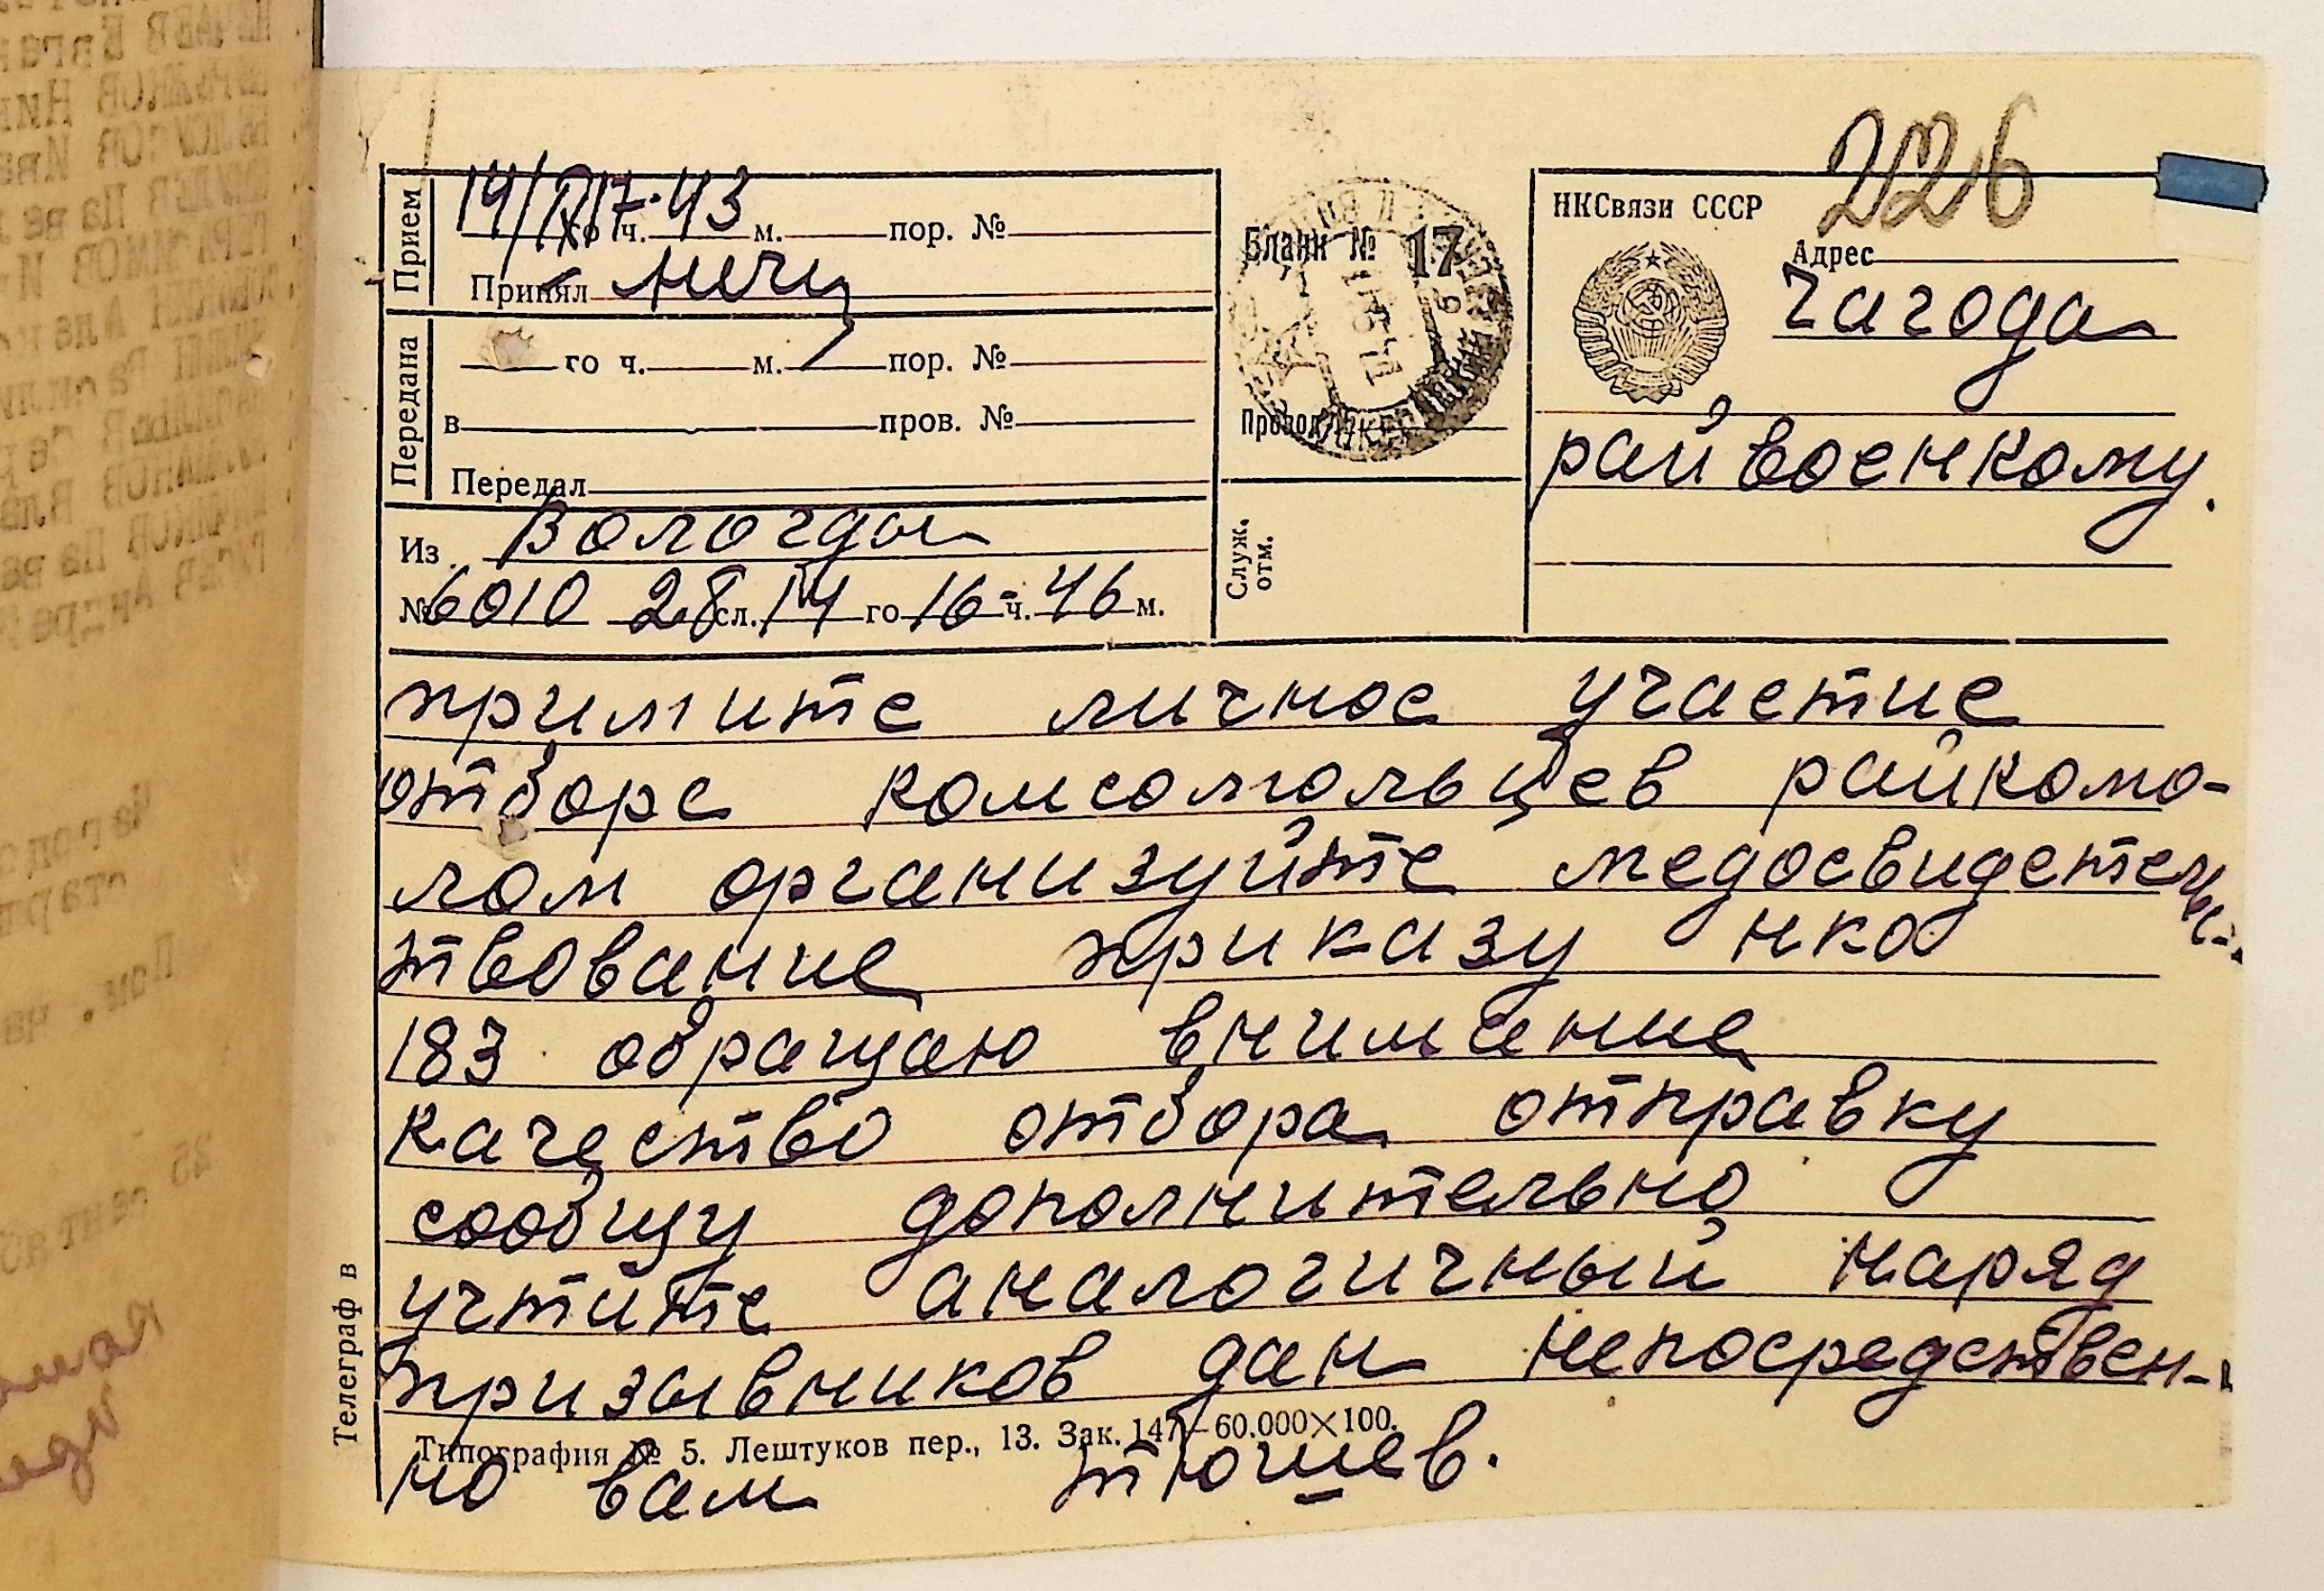 226
НКСвязи СССР
Адрес
Чагода
райвоенкому.
Прием
14/IX 17-43
го ч. м. пор. №
Принял
Передана
го ч. м. пор. №
в пров. №
Передал
Из Вологды
№ 6010 28 сл. 14 го 16 ч. 46 м.
Бланк № 17
Провод
Служ.
отм.
примите личное участие
отборе комсомольцев райкомо-
лом организуйте медосвидетельс-
твование приказу нко
183 обращаю внимание
качество отбора отправку
сообщу дополнительно
учтите аналогичный наряд
призывников дан непосредствен-
но вам тюшев.
Типография № 5. Лештуков пер., 13. Зак. 147—60.000×100.
Телеграф в